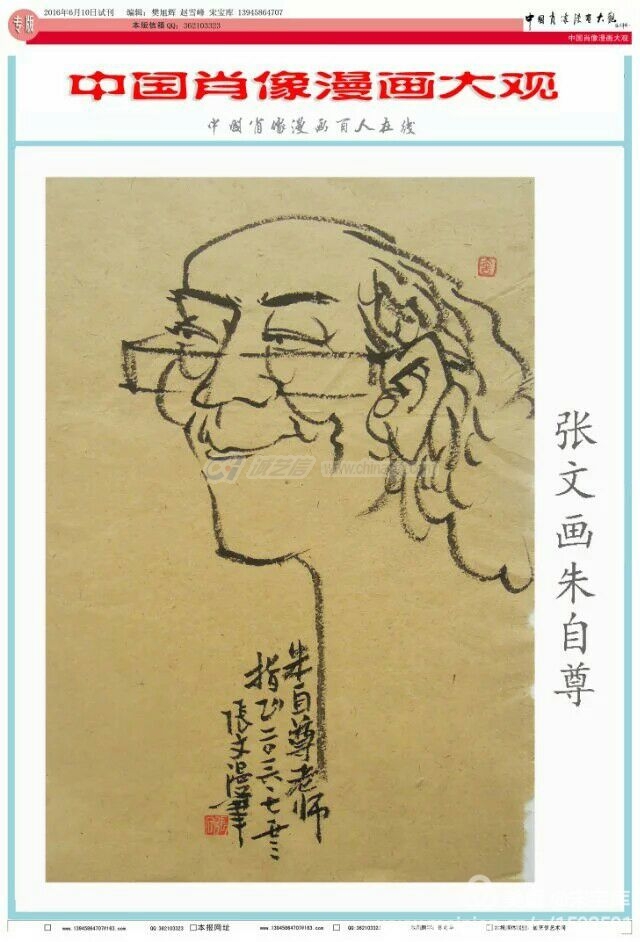 专版
2016年6月10日试刊 编辑：樊旭辉 赵雪峰 宋宝库 13945864707
本版信箱QQ：362103323
中国肖像漫画大观
中国肖像漫画大观
中国肖像漫画百人在线
张文画朱自尊
朱自尊老师
指正二〇一六·七
张文漫笔
www.13945864707@163.com
QQ:362103323
本报网址
www.13945864707@163.com
QQ:362103323